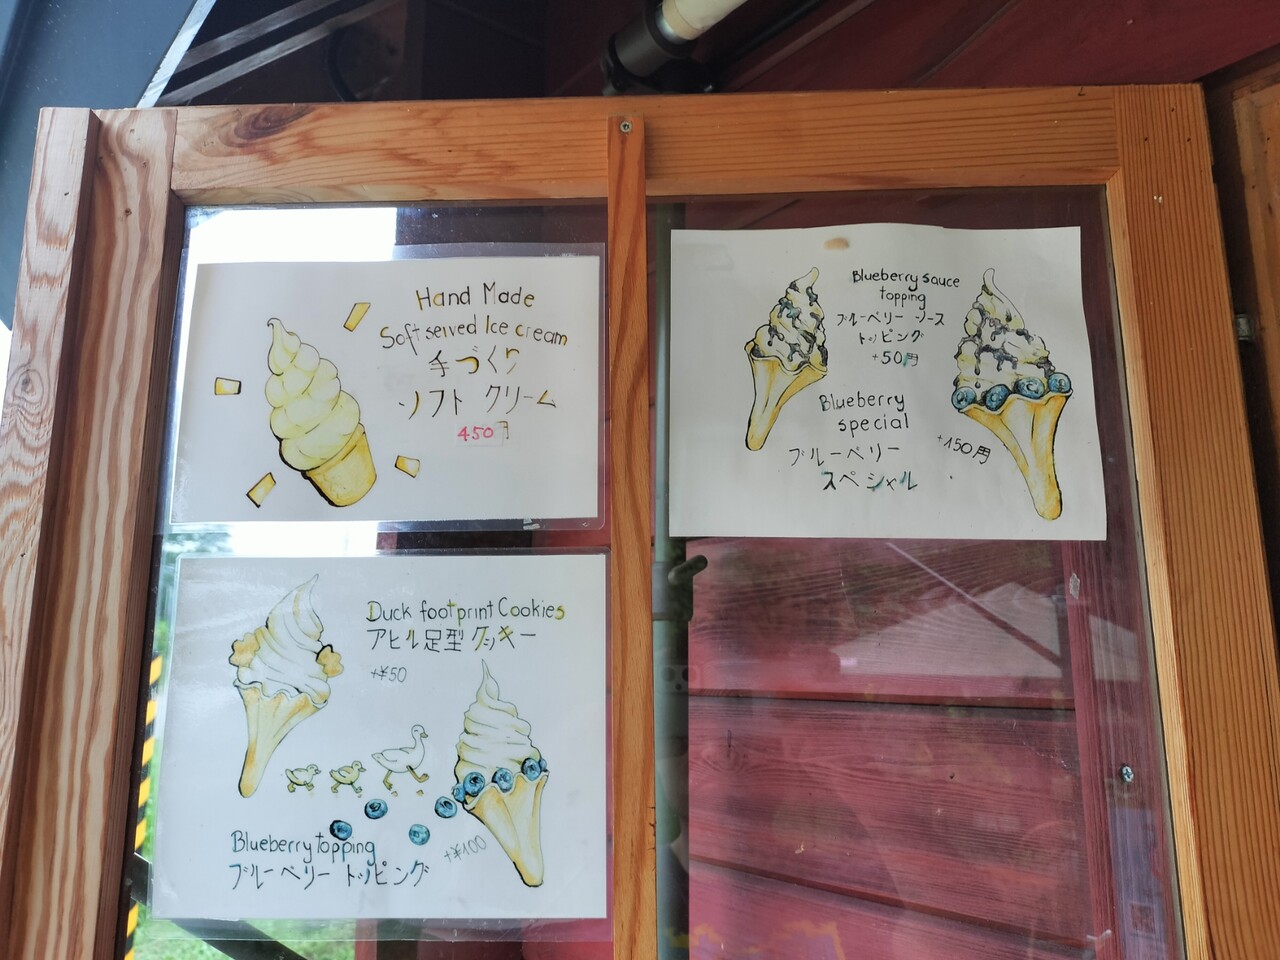 Hand Made
Soft served Ice cream
手づくり
ソフト クリーム
450円
Duck footprint Cookies
アヒル足型クッキー
+¥50
Blueberry topping
ブルーベリー トッピング
+¥100
Blueberry sauce
topping
ブルーベリー ソース
トッピング
+50円
Blueberry
special
+150円
ブルーベリー
スペシャル